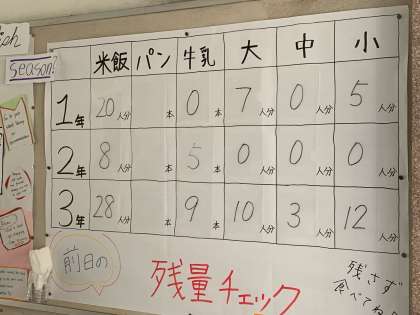 season!
米飯 パン 牛乳 大 中 小
1年 20人分 本 0本 7人分 0人分 5人分
2年 8人分 本 5本 0人分 0人分 0人分
3年 28人分 本 9本 10人分 3人分 12人分
前日の
残量チェック
残さず
食べてね